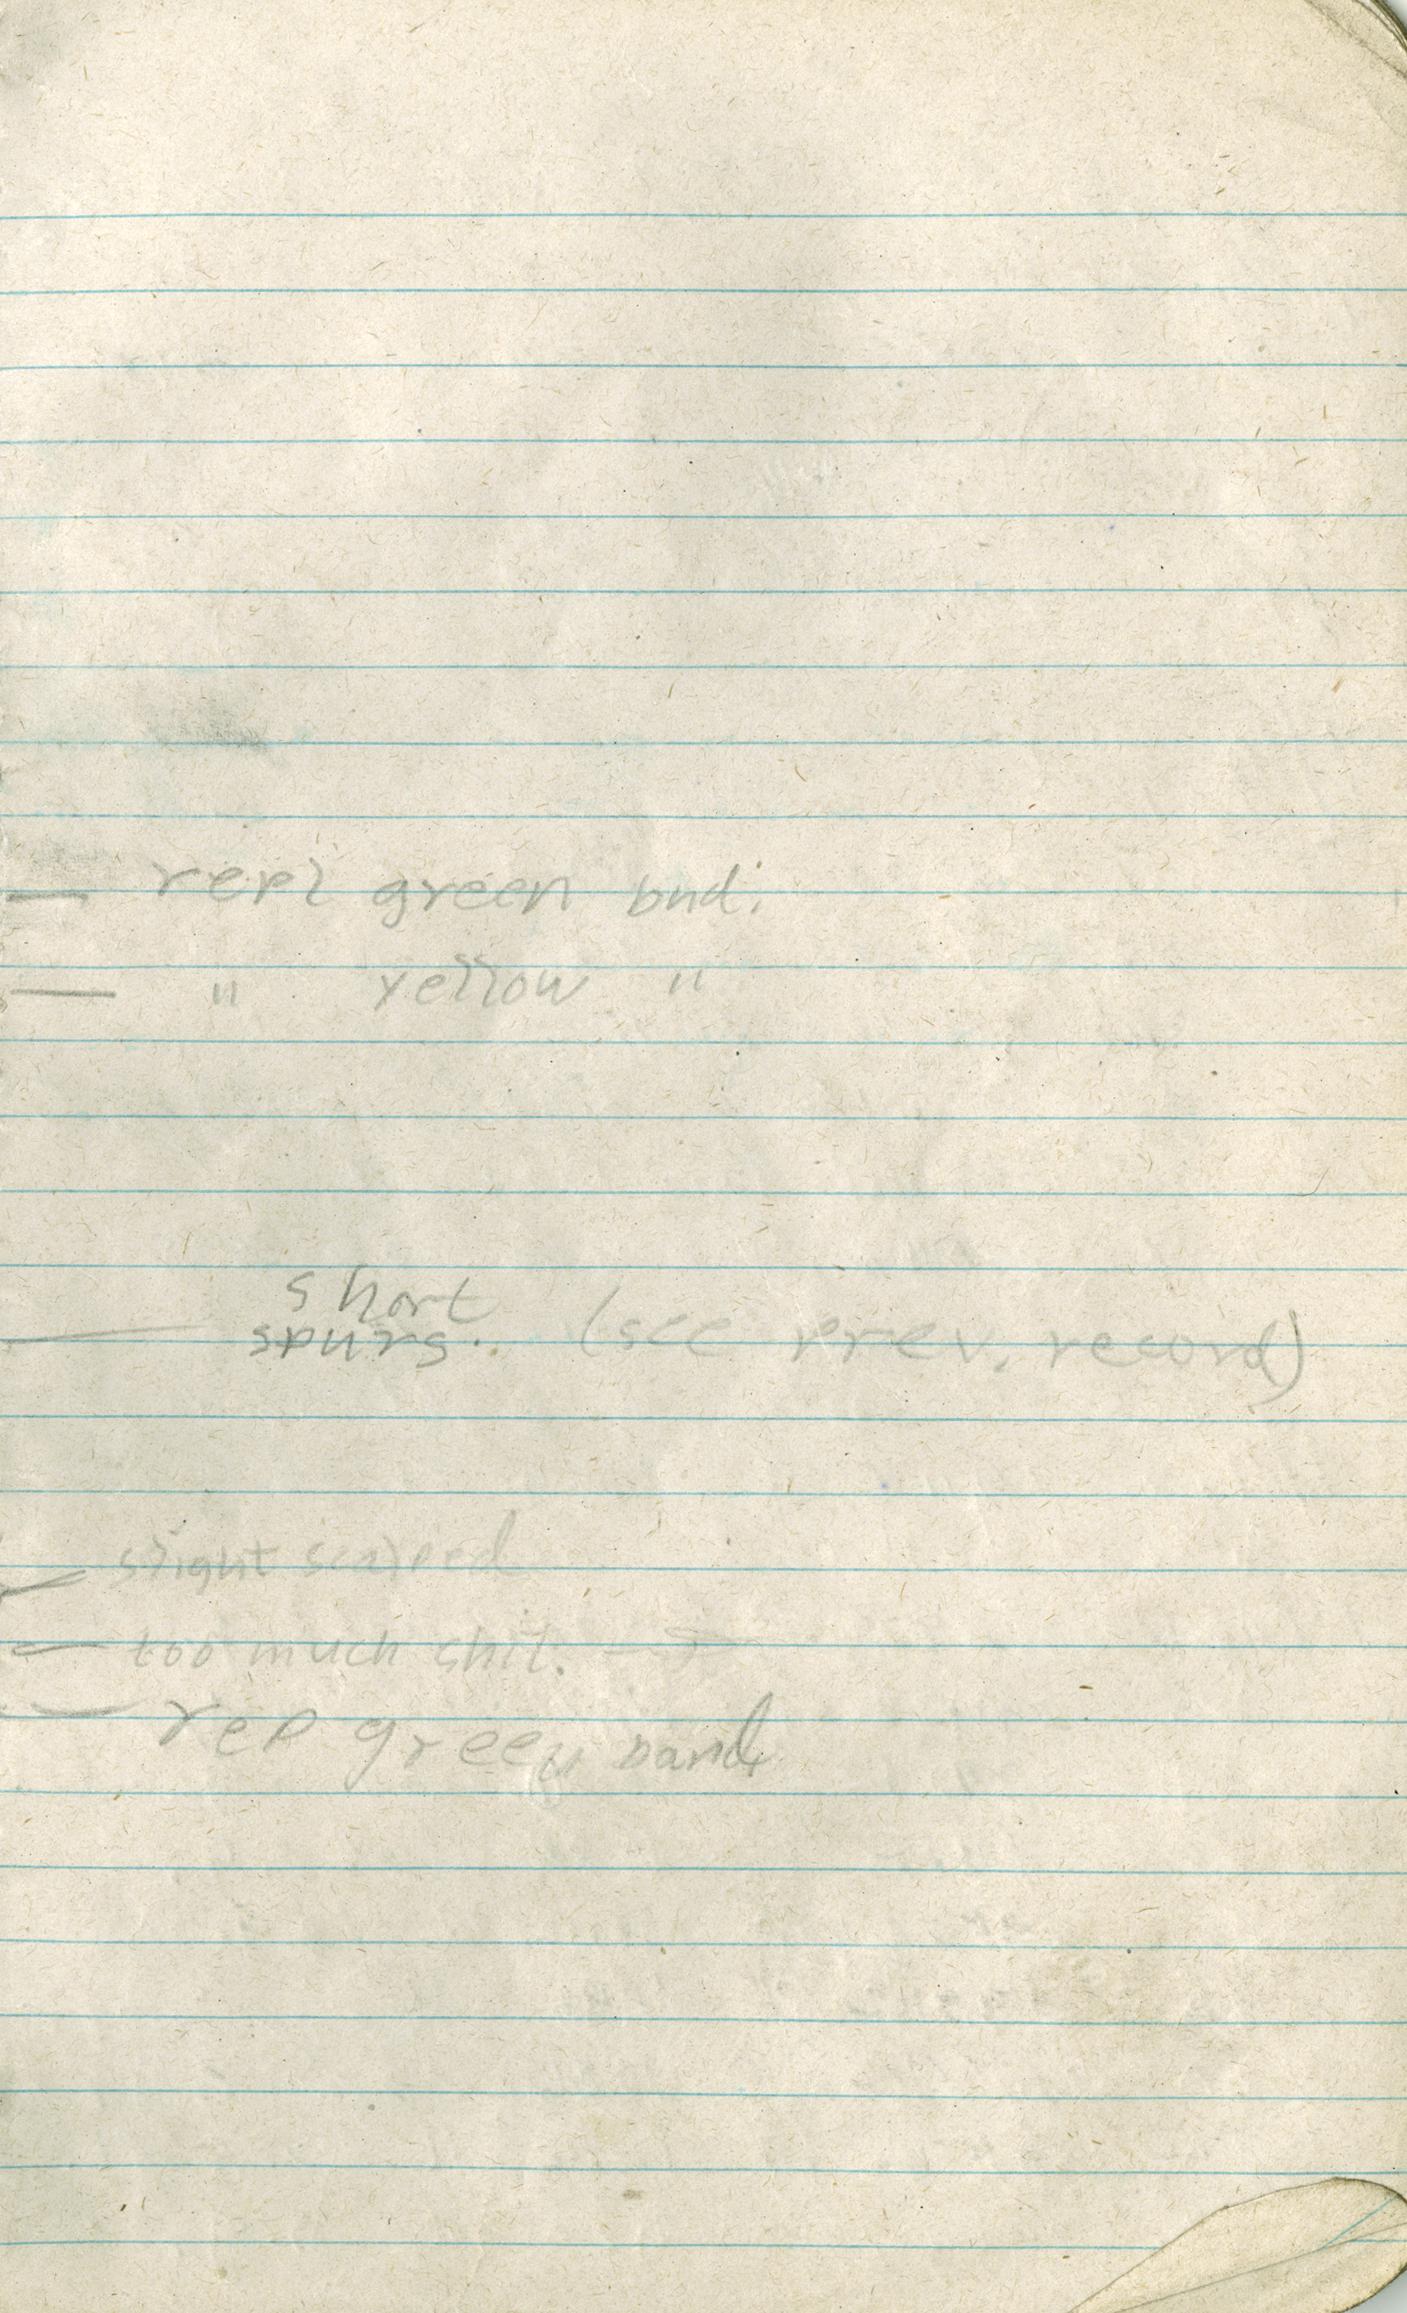 — repl green bnd.
— " yellow "
short
— spurs. (see prev. record)
— slight scalped
— too much shit. —
— rep green band